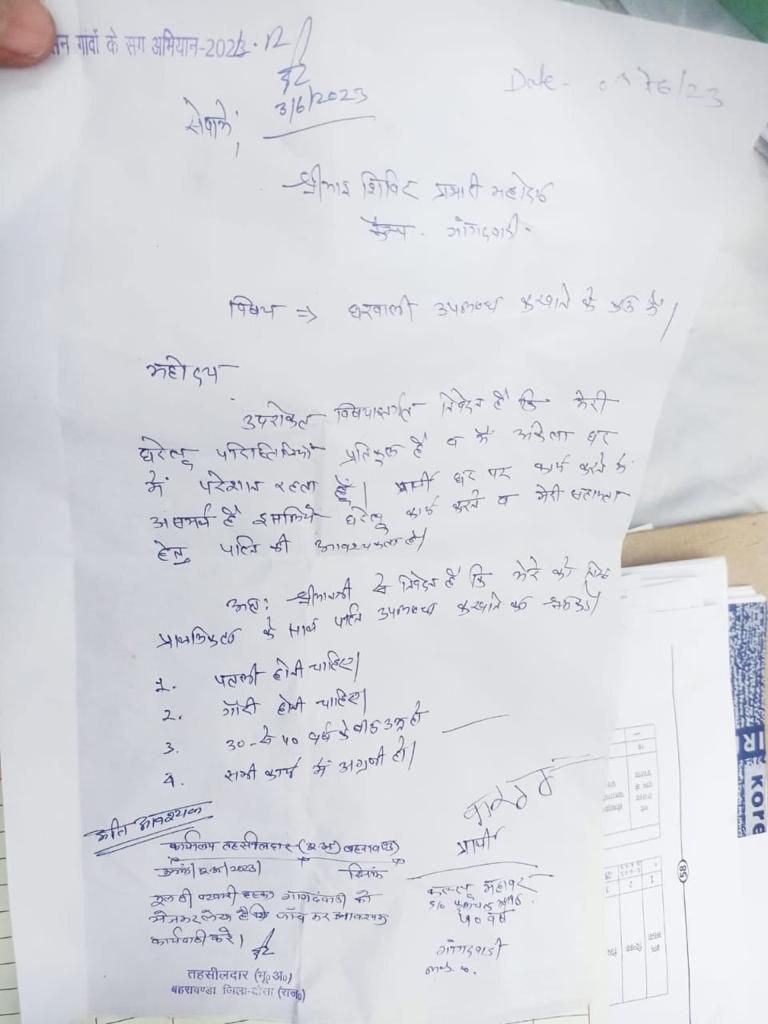 गांवों के सग अभियान-2023
3/6/2023
Date - /6/23
सेवामें,
श्रीमान शिविर प्रभारी महोदय
कैम्प - गांगदवाडी
विषय ⇒ घरवाली उपलब्ध करवाने के क्रम में।
महोदय
उपरोक्त विषयान्तर्गत निवेदन है कि मेरी
घरेलू परिस्थितियाँ प्रतिकूल है व मैं अकेला घर
में परेशान रहता हूँ। प्रार्थी घर पर कार्य करने में
असमर्थ है इसलिये घरेलू कार्य करने व मेरी सहायता
हेतु पत्नि की आवश्यकता है।
अतः श्रीमानजी से निवेदन है कि मेरे को निम्न
प्राथमिकता के साथ पत्नि उपलब्ध करवाने का
1. पतली होनी चाहिए।
2. गौरी होनी चाहिए।
3. 30 से 40 वर्ष के बीच उम्र हो
4. सभी कार्य में अग्रणी हो।
अति आवश्यक
प्रार्थी
कार्यालय तहसीलदार (भू.अ.) बहरावण्डा
2023 दिनांक
कल्लू महावर
S/O
40 वर्ष
मूल ही पटवारी हल्का गांगदवाडी को
भेजकर लेख है कि जाँच कर आवश्यक
कार्यवाही करे।
गांगदवाडी
तहसीलदार (भू०अ०)
बहरावण्डा जिला-दौसा (राज०)
KORE
(58)